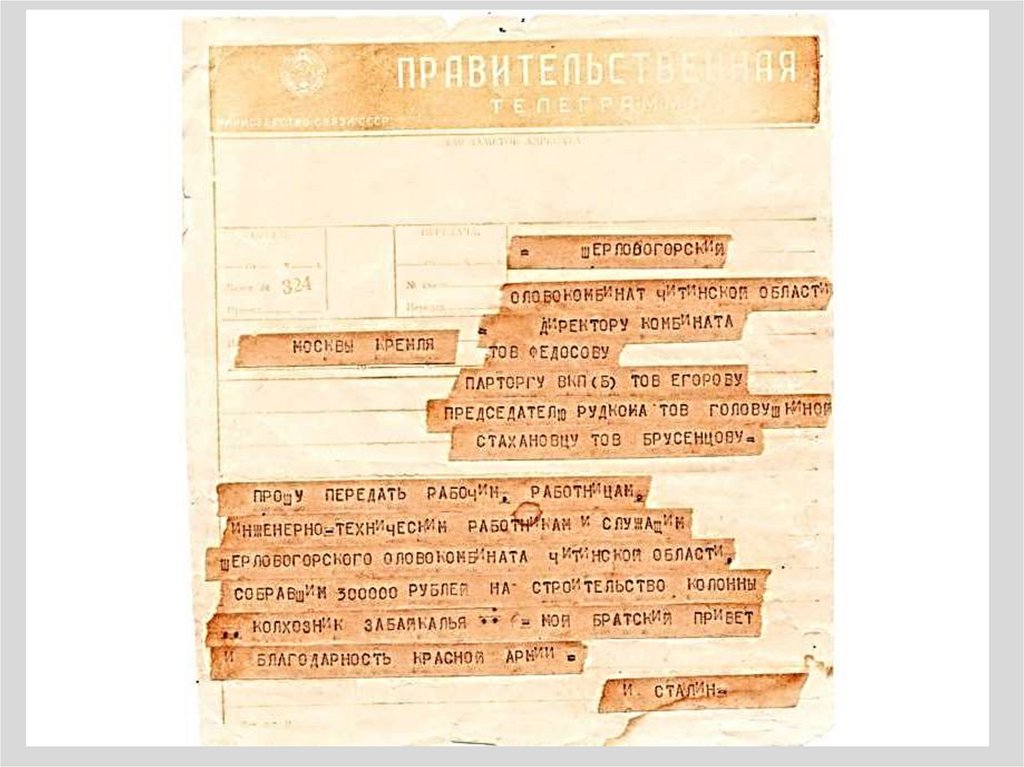 ПРАВИТЕЛЬСТВЕННАЯ
ТЕЛЕГРАММА
МИНИСТЕРСТВО СВЯЗИ СССР
ПЕРЕДАЧА.
324
= ШЕРЛОВОГОРСКИЙ
ОЛОВОКОМБИНАТ ЧИТИНСКОЙ ОБЛАСТИ
= ДИРЕКТОРУ КОМБИНАТА
МОСКВЫ КРЕМЛЯ
ТОВ ФЕДОСОВУ
ПАРТОРГУ ВКП(Б) ТОВ ЕГОРОВУ
ПРЕДСЕДАТЕЛЮ РУДКОМА ТОВ ГОЛОВУШКИНОЙ
СТАХАНОВЦУ ТОВ БРУСЕНЦОВУ=
ПРОШУ ПЕРЕДАТЬ РАБОЧИМ, РАБОТНИЦАМ,
ИНЖЕНЕРНО=ТЕХНИЧЕСКИМ РАБОТНИКАМ И СЛУЖАЩИМ
ШЕРЛОВОГОРСКОГО ОЛОВОКОМБИНАТА ЧИТИНСКОЙ ОБЛАСТИ,
СОБРАВШИМ 300000 РУБЛЕЙ НА СТРОИТЕЛЬСТВО КОЛОННЫ
,, КОЛХОЗНИК ЗАБАЙКАЛЬЯ '' = МОЙ БРАТСКИЙ ПРИВЕТ
И БЛАГОДАРНОСТЬ КРАСНОЙ АРМИИ =
И. СТАЛИН=